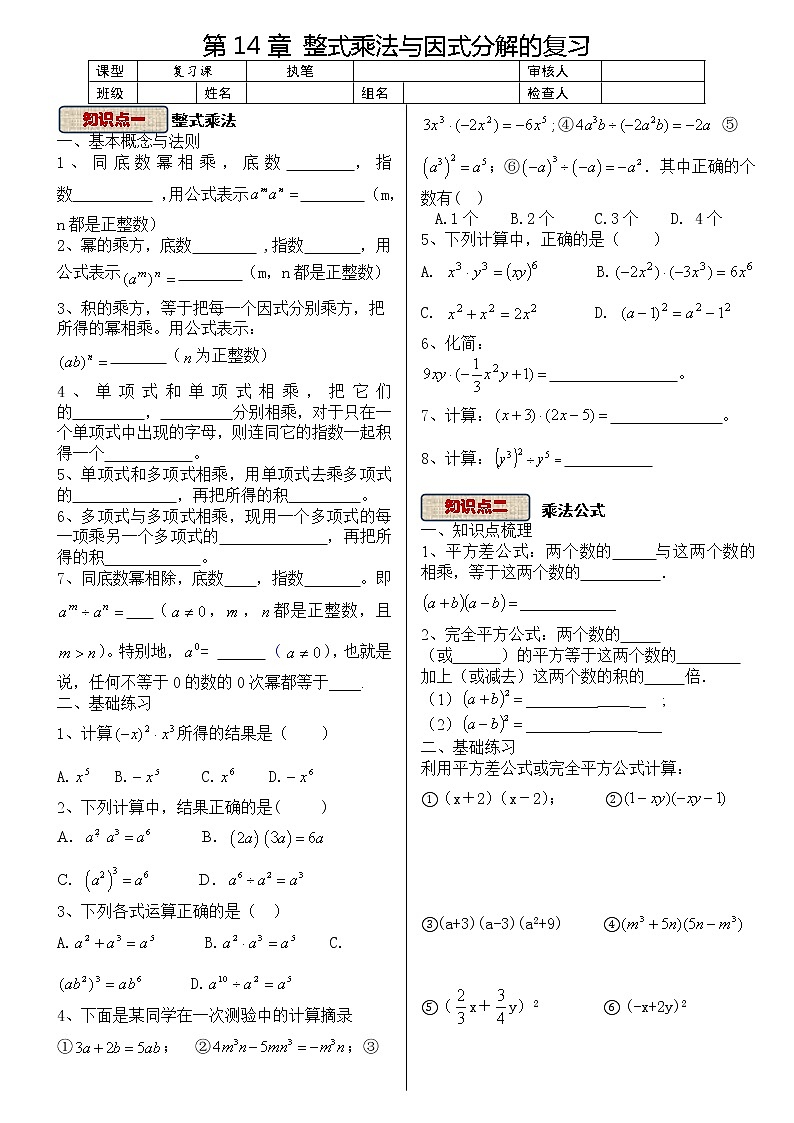 第14章 整式乘法与因式分解的复习
课型 复习课 执笔 审核人
班级 姓名 组名 检查人
知识点一 整式乘法
一、基本概念与法则
1、同底数幂相乘,底数________,指
数__________,用公式表示aᵐaⁿ=________(m,
n都是正整数)
2、幂的乘方,底数________,指数_______,用
公式表示(aᵐ)ⁿ=________(m,n都是正整数)
3、积的乘方,等于把每一个因式分别乘方,把
所得的幂相乘。用公式表示:
(ab)ⁿ=_______(n为正整数)
4、单项式和单项式相乘,把它们
的_________,_________分别相乘,对于只在一
个单项式中出现的字母,则连同它的指数一起积
得一个___________。
5、单项式和多项式相乘,用单项式去乘多项式
的_____________,再把所得的积_________。
6、多项式与多项式相乘,现用一个多项式的每
一项乘另一个多项式的______________,再把所
得的积____________。
7、同底数幂相除,底数____,指数_______。即
aᵐ÷aⁿ=____(a≠0,m,n都是正整数,且
m>n)。特别地,a⁰= ______(a≠0),也就是
说,任何不等于0的数的0次幂都等于____.
二、基础练习
1、计算(−x)²·x³所得的结果是( )
A.x⁵ B.−x⁵ C.x⁶ D.−x⁶
2、下列计算中,结果正确的是( )
A.a² a³=a⁶ B.(2a)(3a)=6a
C.(a²)³=a⁶ D.a⁶÷a²=a³
3、下列各式运算正确的是( )
A.a²+a³=a⁵ B.a²·a³=a⁵ C.
(ab²)³=ab⁶ D.a¹⁰÷a²=a⁵
4、下面是某同学在一次测验中的计算摘录
①3a+2b=5ab; ②4m³n−5mn³=−m³n;③
3x³·(−2x²)=−6x⁵;④4a³b÷(−2a²b)=−2a ⑤
(a³)²=a⁵;⑥(−a)³÷(−a)=−a².其中正确的个
数有( )
A.1个 B.2个 C.3个 D. 4个
5、下列计算中,正确的是( )
A. x³·y³=(xy)⁶ B.(−2x²)·(−3x³)=6x⁶
C. x²+x²=2x² D. (a−1)²=a²−1²
6、化简:
9xy·(−1/3x²y+1)=________________。
7、计算:(x+3)·(2x−5)=______________。
8、计算:(y³)²÷y⁵=___________
知识点二 乘法公式
一、知识点梳理
1、平方差公式:两个数的_____与这两个数的
相乘,等于这两个数的__________.
(a+b)(a−b)=____________
2、完全平方公式:两个数的_____
(或______)的平方等于这两个数的________
加上(或减去)这两个数的积的_____倍.
(1)(a+b)²=_______________;
(2)(a−b)²=_________________
二、基础练习
利用平方差公式或完全平方公式计算:
①(x+2)(x-2); ②(1−xy)(−xy−1)
③(a+3)(a-3)(a²+9) ④(m³+5n)(5n−m³)
⑤(2/3x+3/4y)² ⑥(-x+2y)²